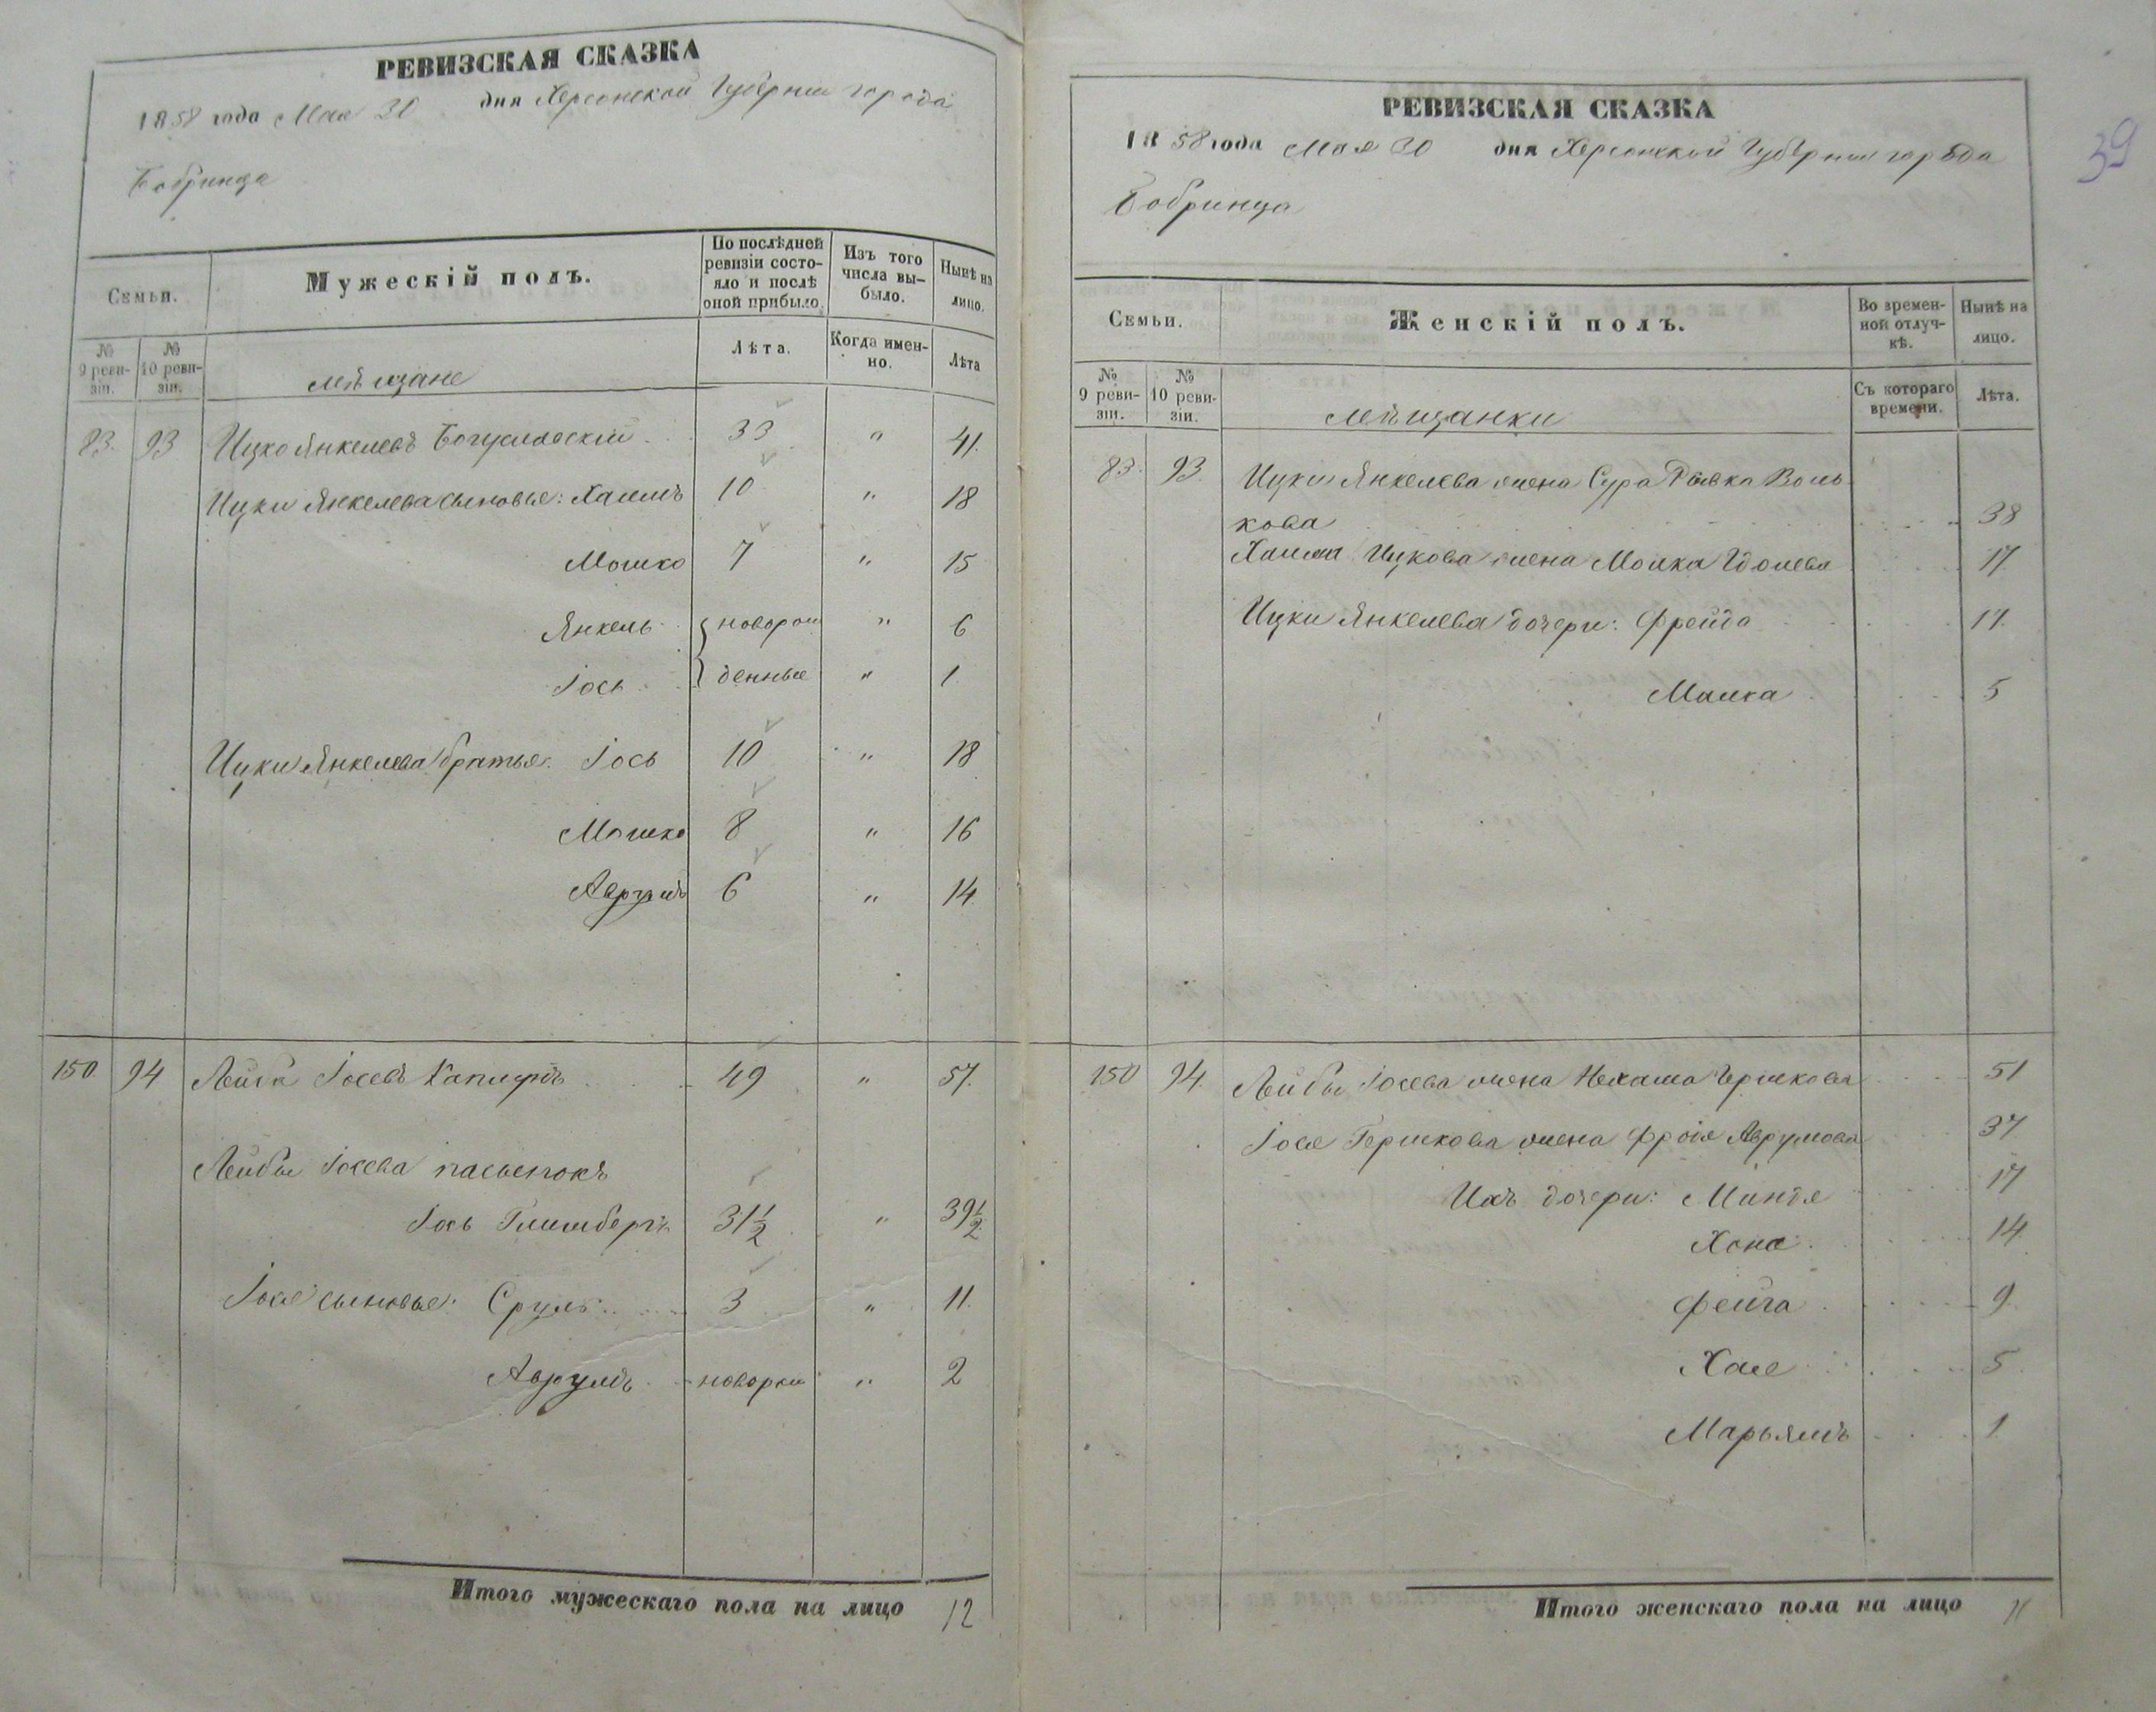 РЕВИЗСКАЯ СКАЗКА
1858 года Мая 30 дня Херсонской Губернии города
Бобринца
Семьи.
Мужескій полъ.
По послѣдней ревизіи состояло и послѣ оной прибыло.
Изъ того числа выбыло.
Нынѣ на лицо.
№ 9 ревизіи.
№ 10 ревизіи.
мѣщане
Лѣта.
Когда именно.
Лѣта
83. 93 Ицко Янкелевъ Богуславскій 33 " 41.
Ицки Янкелева сыновья: Хаимъ 10 " 18
Мошко 7 " 15
Янкель новорож " 6
Іось денные " 1
Ицки Янкелева братья: Іось 10 " 18
Мошко 8 " 16
Аврумъ 6 " 14
150. 94 Лейба Іосевъ 49 " 57.
Лейбы Іосева пасынокъ
Іось 31 1/2 " 39 1/2
Іося сыновья: Сруль 3 " 11.
Аврумъ новорож " 2
Итого мужескаго пола на лицо 12
39
РЕВИЗСКАЯ СКАЗКА
1858 года Мая 30 дня Херсонской Губернии города
Бобринца
Семьи.
Женскій полъ.
Во временной отлучкѣ.
Нынѣ на лицо.
№ 9 ревизіи.
№ 10 ревизіи.
мѣщанки
Съ котораго времени.
Лѣта.
83. 93. Ицки Янкелева жена Сура Рывка Воль
кова 38
Хаима Ицкова жена Молка 17
Ицки Янкелева дочери: Фрейда 17.
Малка 5
150 94. Лейбы Іосева жена Нехама Гершкова 51
Іося Гершкова жена Аврумова 37
Ихъ дочери: Миндя 17
Хана 14
Фейга 9
Хая 5
Марьямъ 1
Итого женскаго пола на лицо 11